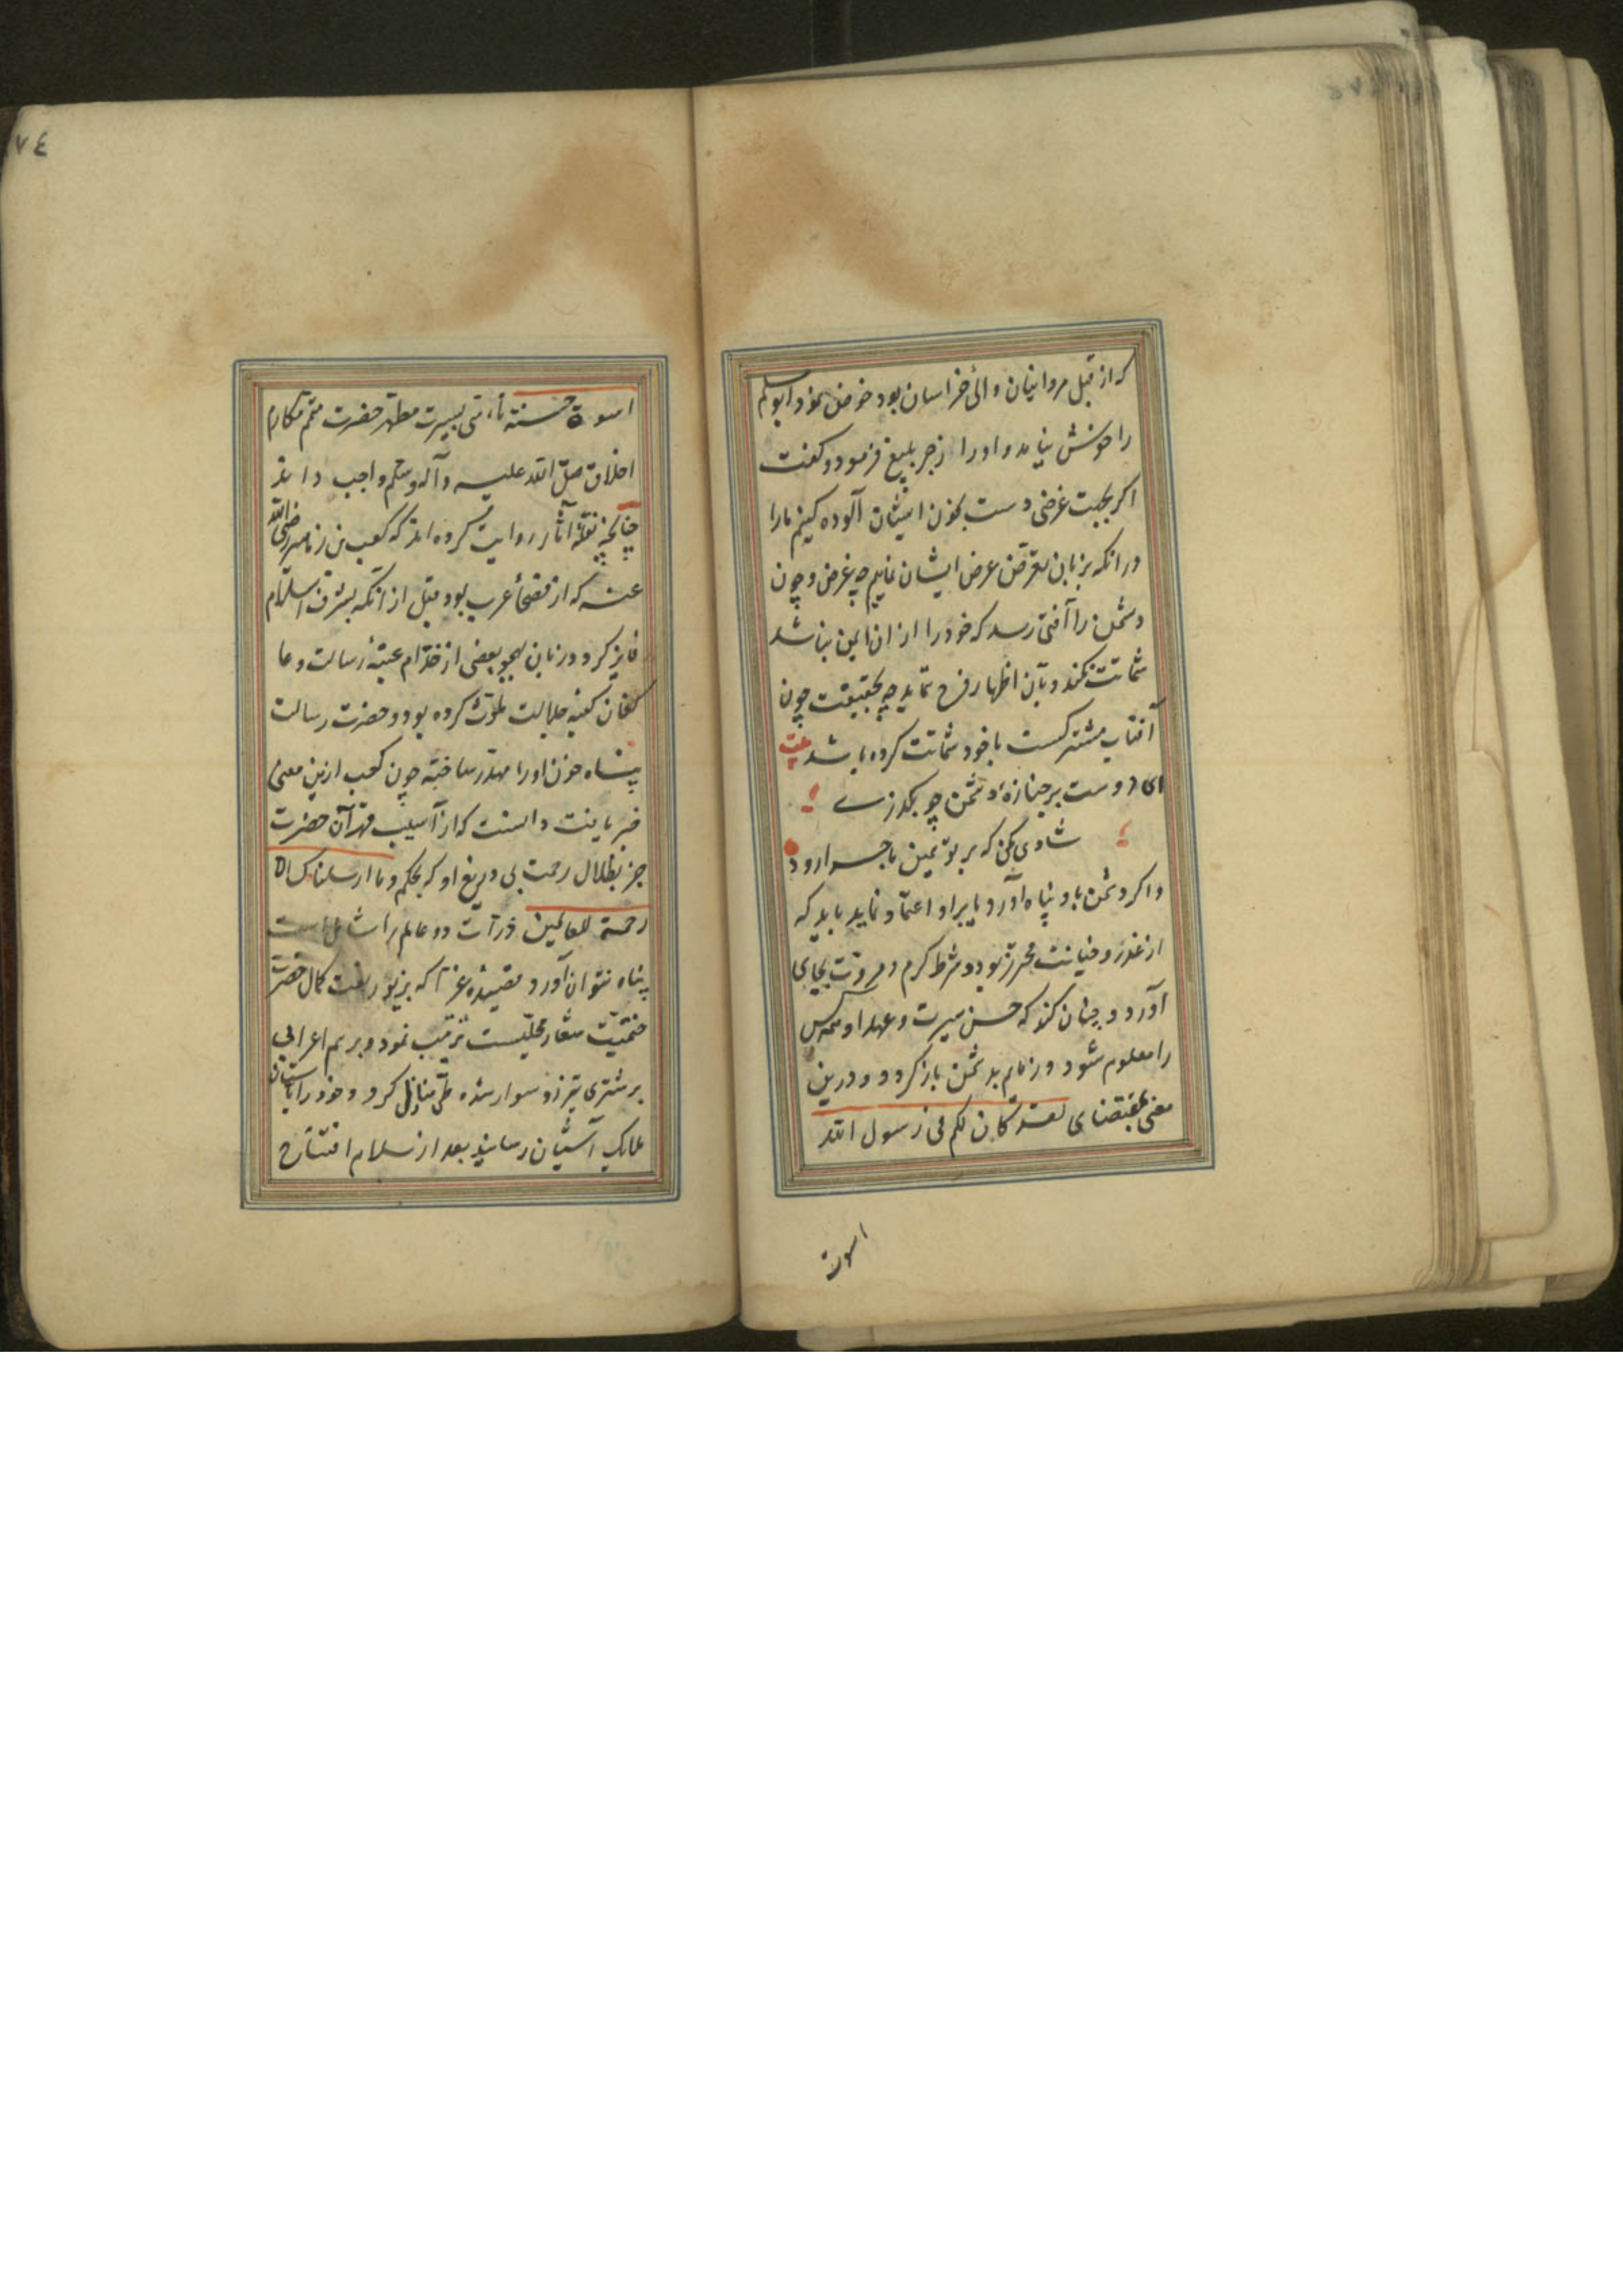 که از قبل مروانیان والی خراسان بود خوض نمود ابومسلم
را خوش نیامد و او را زجر بلیغ فرمود و کفت
اکر بجهت غرضی دست بخون ایشان آلوده کنیم ما را
در انکه بزبان تعرض عرض ایشان نمایم چه غرض و چون
دشمن را آفتی رسد که خود را از ان ایمن نباشد
شماتت نکند و بآن اظهار فرح ننماید چه بحقیقت چون
آفتاب مشترکست با خود شماتت کرده باشد بیت
ای دوست بر جنازهٔ دشمن چو بکذری
شادی مکن که بر تو همین ماجرا رود
و اکر دشمن باو پناه آورد یا براو اعتماد نماید باید که
از غدر و خیانت محرز بود و شرط کرم و مروت بجای
آورد و چنان کند که حسن سیرت و عهد او همه کس
را معلوم شود و زمایم بدشمن باز کردد و درین
معنی بمقتضای لقد کان لکم فی رسول الله
اسوة
٧٤
اسوة حسنة تأسی بسیرت مطهر حضرت متمم مکارم
اخلاق صلی الله علیه وآله وسلم واجب داند
چنانچه نقلهٔ آثار روایت کرده اند که کعب بن زهیر رضی الله
عنه که از فصحاء عرب بود قبل از انکه بشرف اسلام
فایز کردد زبان بهجو بعضی از خدام عتبهٔ رسالت و عا
کفان کعبه جلالت ملوث کرده بود و حضرت رسالت
پناه خون او را مهدر ساخته چون کعب ازین معنی
خبر یافت دانست که از آسیب قهر آن حضرت
جز بظلال رحمت بی دریغ او که بحکم وما ارسلناک الا
رحمة للعالمین ذرات دو عالم را شاملست
پناه نتوان آورد قصیده غرا که بزیور نعت کمال حضرت
ختمیت شعار محلیست ترتیب نمود و برسم اعرابی
بر شتری تیزرو سوار شده طی منازل کرد و خود را بآستان
ملایک آشیان رسانید بعد از سلام افتتاح